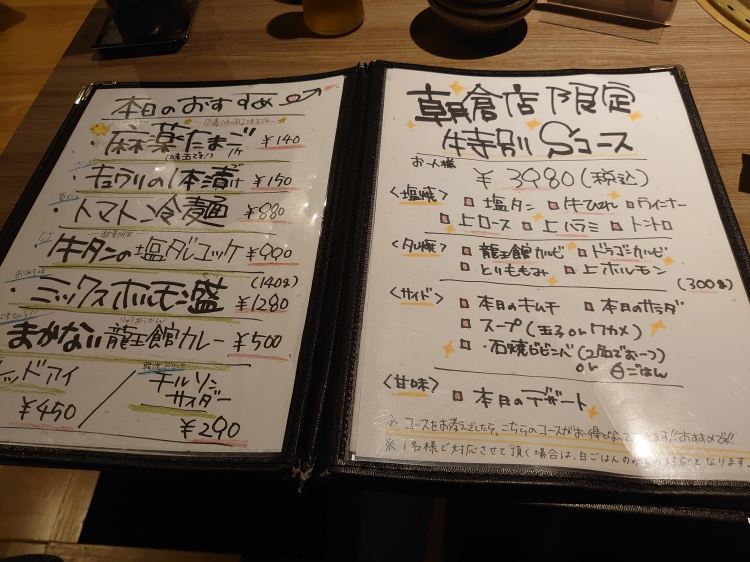 本日のおすすめ
麻薬たまご
1ケ ¥140
(味玉です!)
キュウリの1本漬け ¥150
トマトン冷麺 ¥880
牛タンの塩ダレユッケ ¥990
ミックスホルモン盛 (140g) ¥1280
まかない龍王館カレー ¥500
レッドアイ
¥450
チルソン
サイダー
¥290
朝倉店限定
特別Sコース
お一人様
¥3980(税込)
<塩焼> 塩タン 牛ひれ ウインナー
上ロース 上ハラミ トントロ
<タレ焼> 龍王館カルビ ドラゴンカルビ
とりももみ 上ホルモン
(300g)
<サイド> 本日のキムチ 本日のサラダ
スープ(玉子orワカメ)
石焼ビビンバ(2名で1つ)
or 白ごはん
<甘味> 本日のデザート
※ コースをお考えでしたら、こちらのコースがお得となっています!!おすすめです!!
※1名様で対応させて頂く場合は、白ごはんのみの対応となります